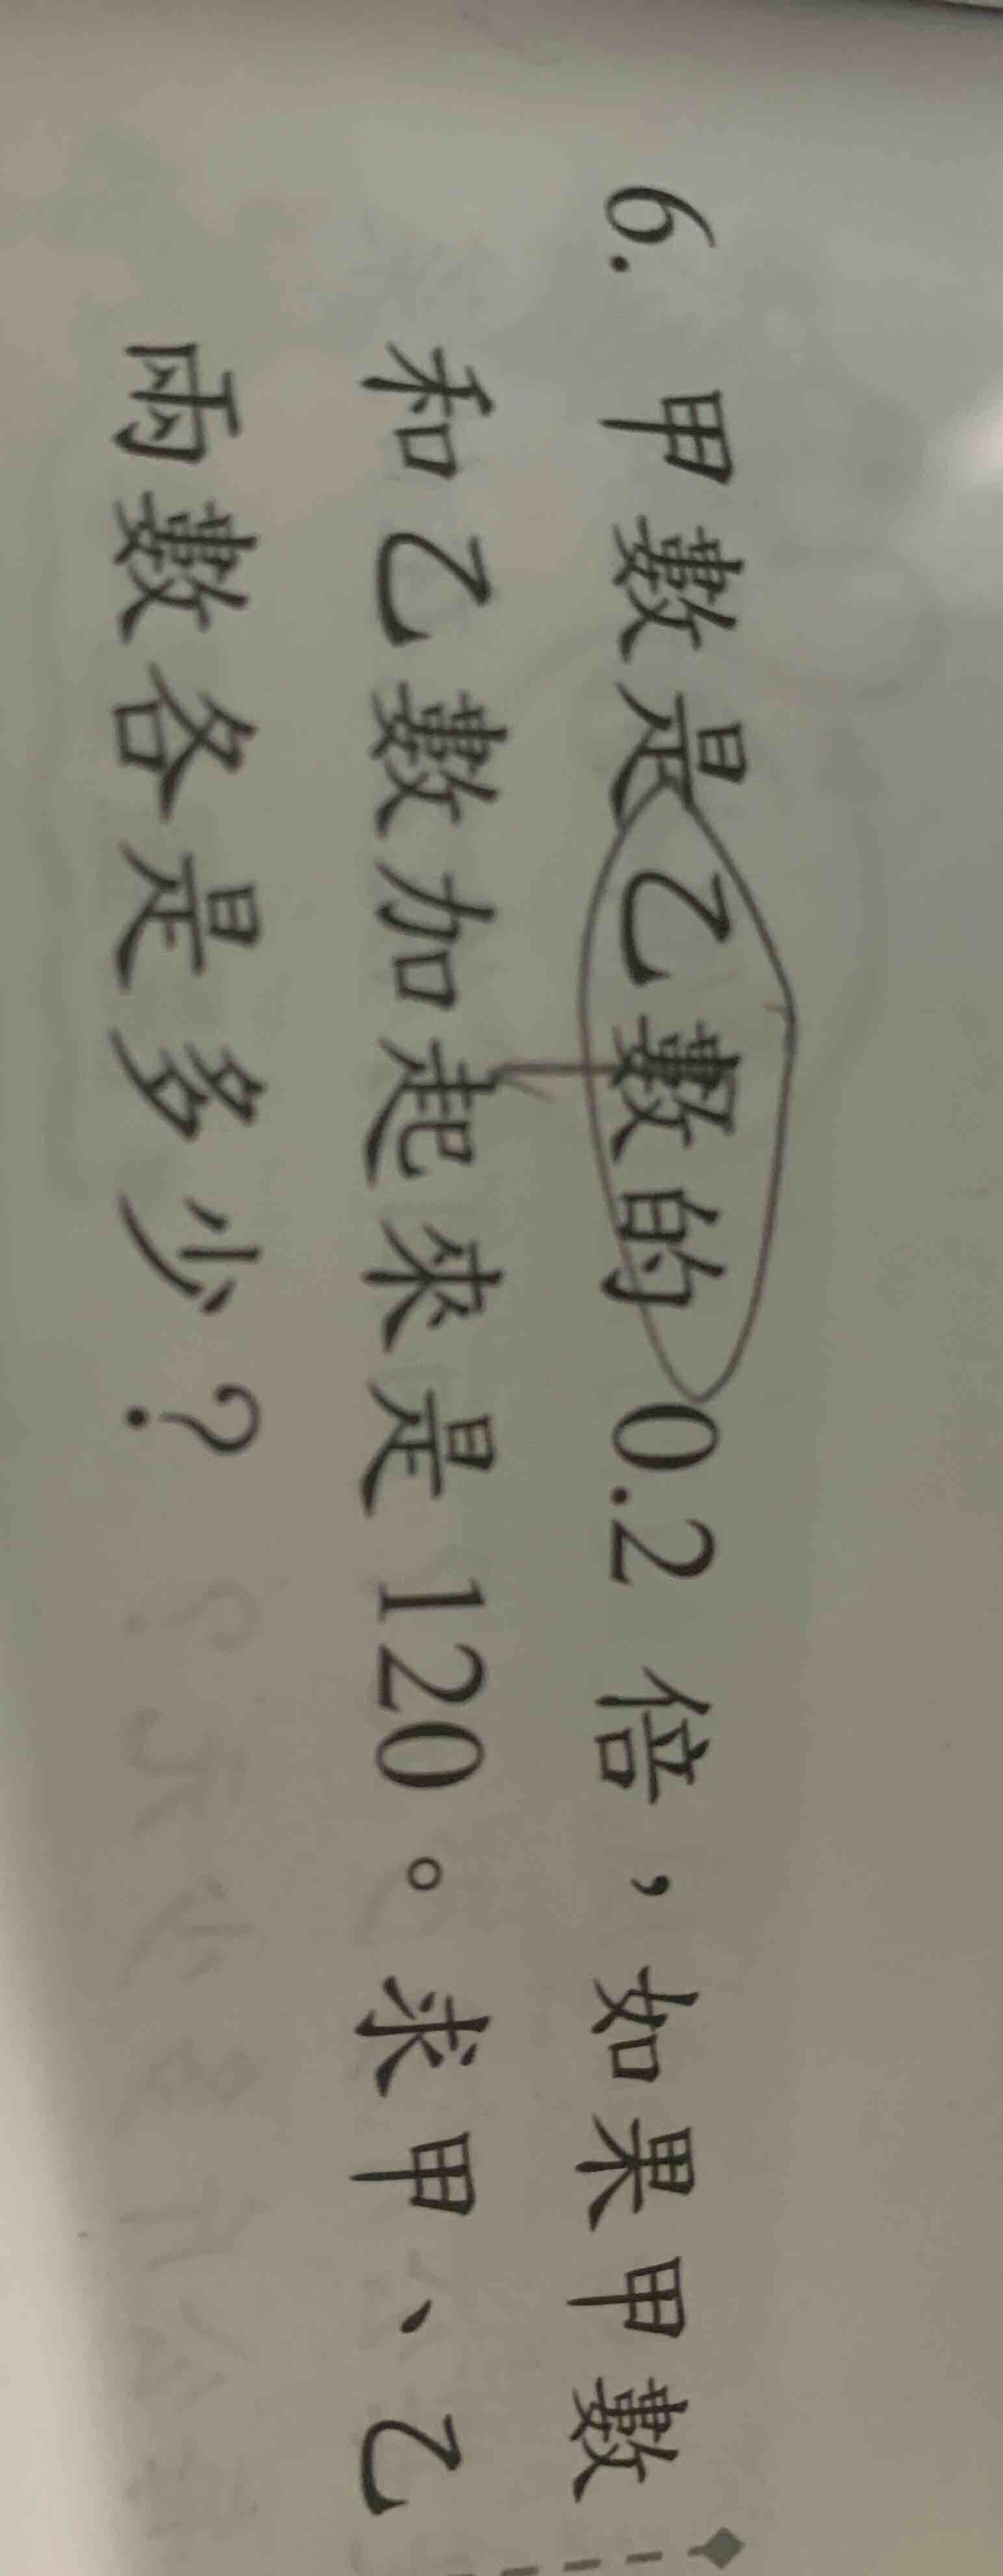 6. 甲數是乙數的 0.2 倍，如果甲數
和乙數加起來是120。求甲、乙
兩數各是多少？